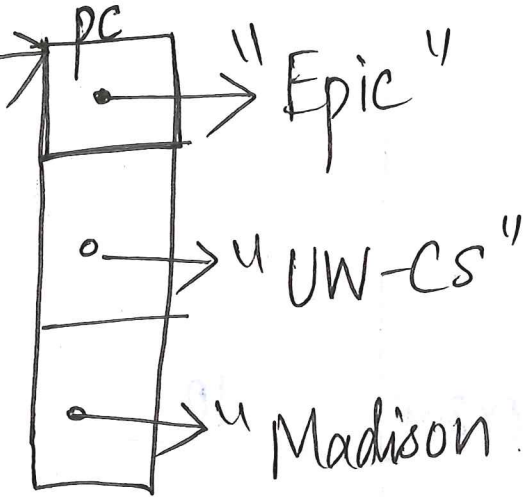 pc
"Epic"
"UW-CS"
"Madison.